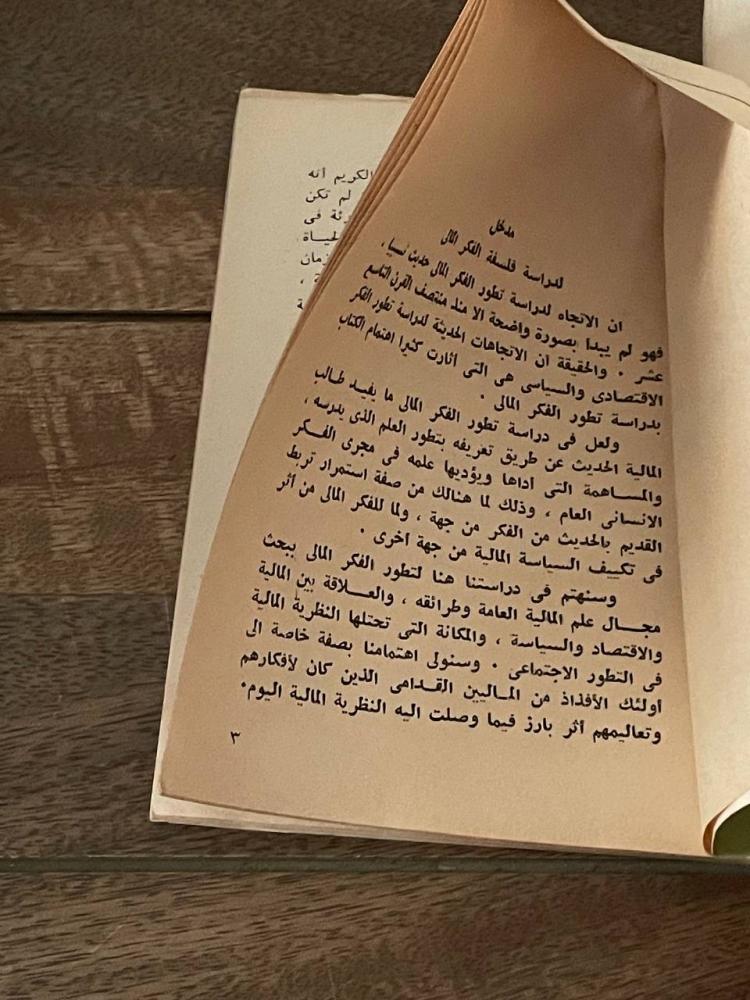 مدخل
لدراسة فلسفة الفكر المالى
ان الاتجاه لدراسة تطور الفكر المالى حديث نسبيا ،
فهو لم يبدا بصورة واضحة الا منذ منتصف القرن التاسع
عشر . والحقيقة ان الاتجاهات الحديثة لدراسة تطور الفكر
الاقتصادى والسياسى هى التى أثارت كثيرا اهتمام الكتاب
بدراسة تطور الفكر المالى .
ولعل فى دراسة تطور الفكر المالى ما يفيد طالب
المالية الحديث عن طريق تعريفه بتطور العلم الذى يدرسه ،
والمساهمة التى أداها ويؤديها علمه فى مجرى الفكر
الانسانى العام ، وذلك لما هنالك من صفة استمرار تربط
القديم بالحديث من الفكر من جهة ، ولما للفكر المالى من أثر
فى تكييف السياسة المالية من جهة أخرى .
وسنهتم فى دراستنا هنا لتطور الفكر المالى ببحث
مجال علم المالية العامة وطرائقه ، والعلاقة بين المالية
والاقتصاد والسياسة ، والمكانة التى تحتلها النظرية المالية
فى التطور الاجتماعى . وسنولى اهتمامنا بصفة خاصة الى
أولئك الأفذاذ من الماليين القدامى الذين كان لأفكارهم
وتعاليمهم أثر بارز فيما وصلت اليه النظرية المالية اليوم.
٣
الكريم أنه
لم تكن
فى